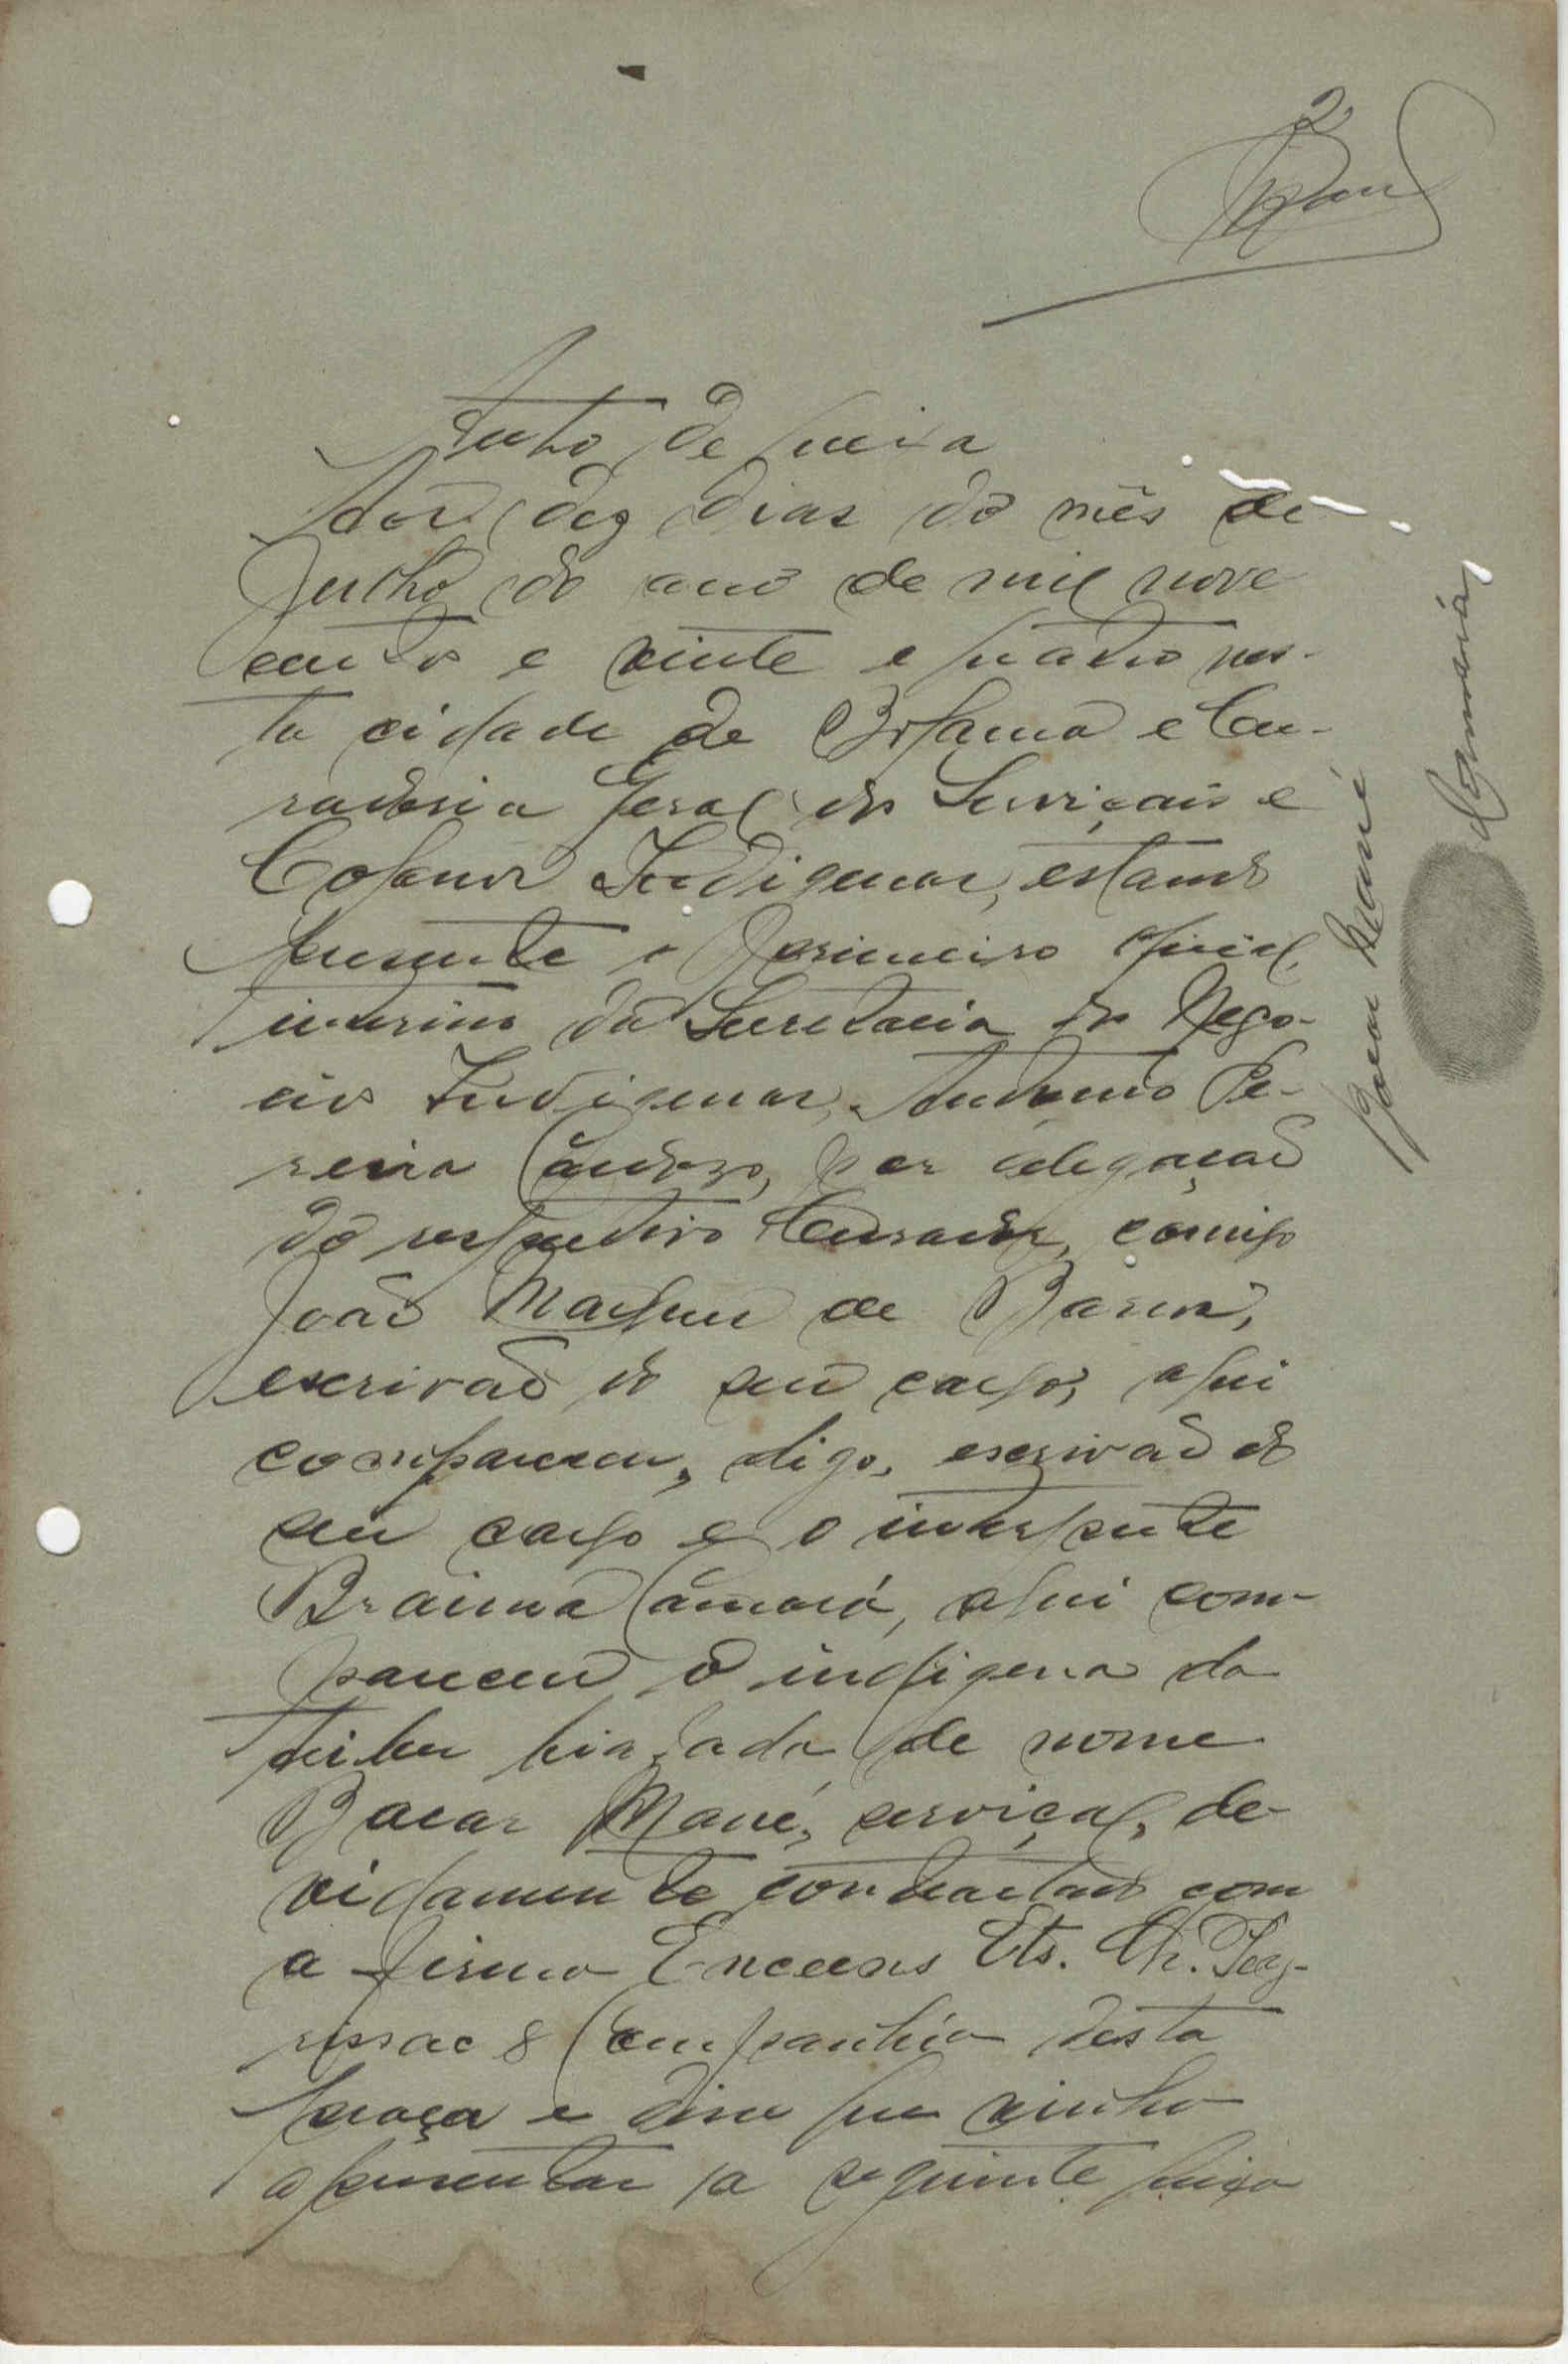 2
Auto de queixa
Aos dez dias do mês de
Julho do ano de mil nove
centos e vinte e quatro nes-
ta cidade de Bolama e Cu-
radoria Geral dos Serviçais e
Colonos Indigenas, estando
presente o primeiro oficial,
interino da Secretaria dos Nego-
cios Indigenas, Antonio Pe-
reira Cardozo, por delegação
do respectivo Curador, comigo
João Marques de Barros,
escrivão do seu cargo, aqui
compareceu, digo, escrivão do
seu cargo e o interprete
Braima Camará, aqui com-
pareceu o indigena da
tribu biafada de nome
Bacar Mané, serviçal, de-
vidamente contractado com
a firma Ets. Ch. Pey-
rissac & Companhia desta
praça e disse que vinha
apresentar a seguinte queixa
Bacar Mané